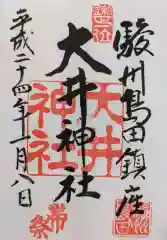 駿州島田鎮座
大井神社
大井神社
平成二十四年一月八日
帯祭